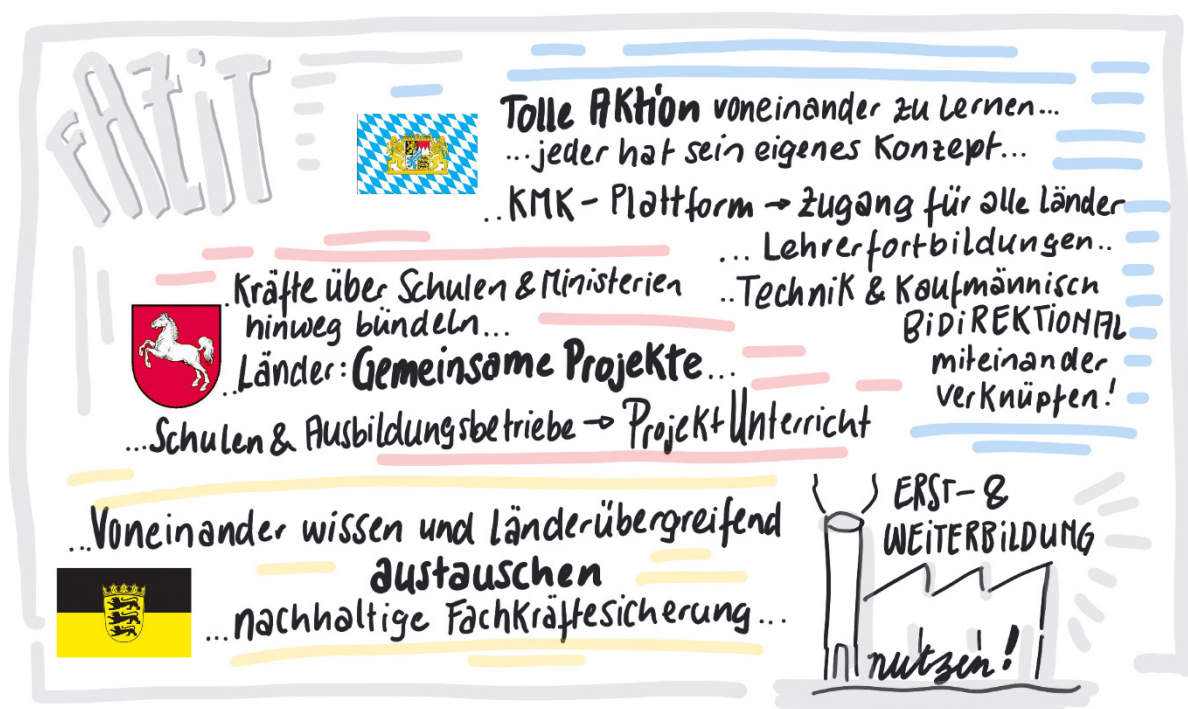 FAZiT
Tolle AKtion voneinander zu lernen...
...jeder hat sein eigenes Konzept...
..KMK - Plattform → Zugang für alle Länder
... Lehrerfortbildungen..
..Technik & Kaufmännisch
BiDiREKTiONAL
miteinander
verknüpfen!
..Kräfte über Schulen & Ministerien
hinweg bündeln...
..Länder: Gemeinsame Projekte...
...Schulen & Ausbildungsbetriebe → ProjektUnterricht
...Voneinander wissen und länderübergreifend
austauschen
...nachhaltige Fachkräftesicherung...
ERST- &
WEiTERBiLDUNG
nutzen!